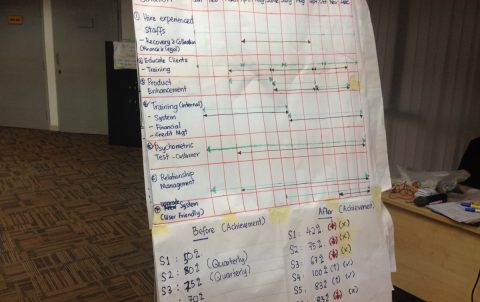 Jan Feb
May June July Aug Sept Oct Nov Dec
① Hire experienced
Staffs
- Recovery & Collection
(Finance & legal)
② Educate Clients
- Training
③ Product
Enhancement
④ Training (Internal)
- System
- Financial
- Credit Mgt
⑤ Psychometric
Test - Customer
⑥ Relationship
Management
upgrade
System
(User Friendly)
Before (Achievement)
S1 : 50%
S2 : 80% (Quarterly)
S3 : 75% (Quarterly)
70%
After (Achievement
S1 : 42% (x)
S2 : 75% (x)
S3 : 67% (x)
S4 : 100% (↑) (✓)
S5 : 83% (↑) (✓)
(x)